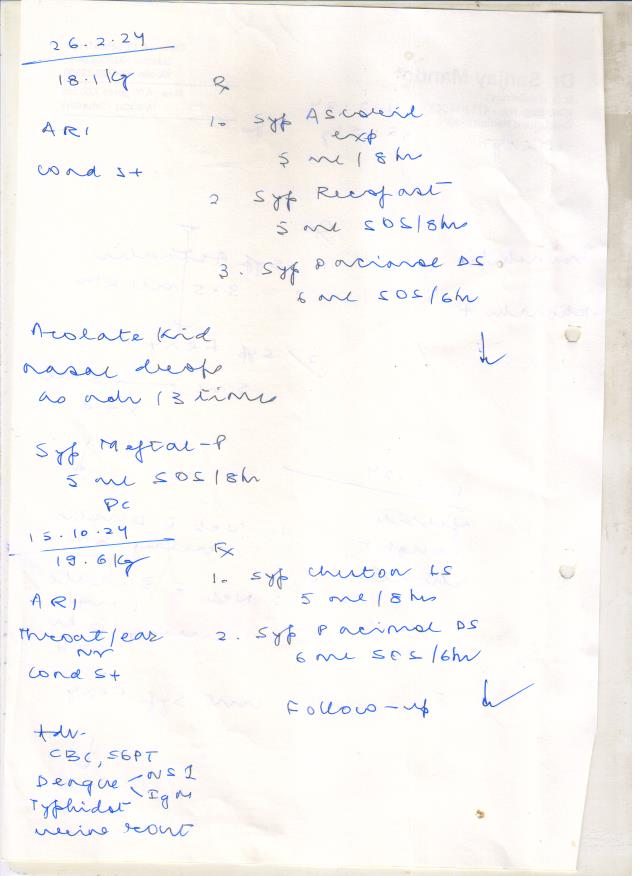 26.2.24
18.1 kg
ARI
cond S+
Rx
1. Syp Ascoril
exp
5 ml / 8 hr
2 Syp Recofast
5 ml SOS/8hr
3. Syp Pacimol DS
6 ml SOS/6hr
Acolate Kid
nasal drops
as adv / 3 times
Syp Meftal-P
5 ml SOS/8hr
PC
15.10.24
19.6 kg
ARI
Throat/ear
Nr
cond S+
Rx
1. Syp LS
5 ml / 8 hrs
2. Syp Pacimol DS
6 ml SOS /6hr
Follow-up
Adv-
CBC, SGPT
Dengue NS1
IgM
Typhidot
urine rout